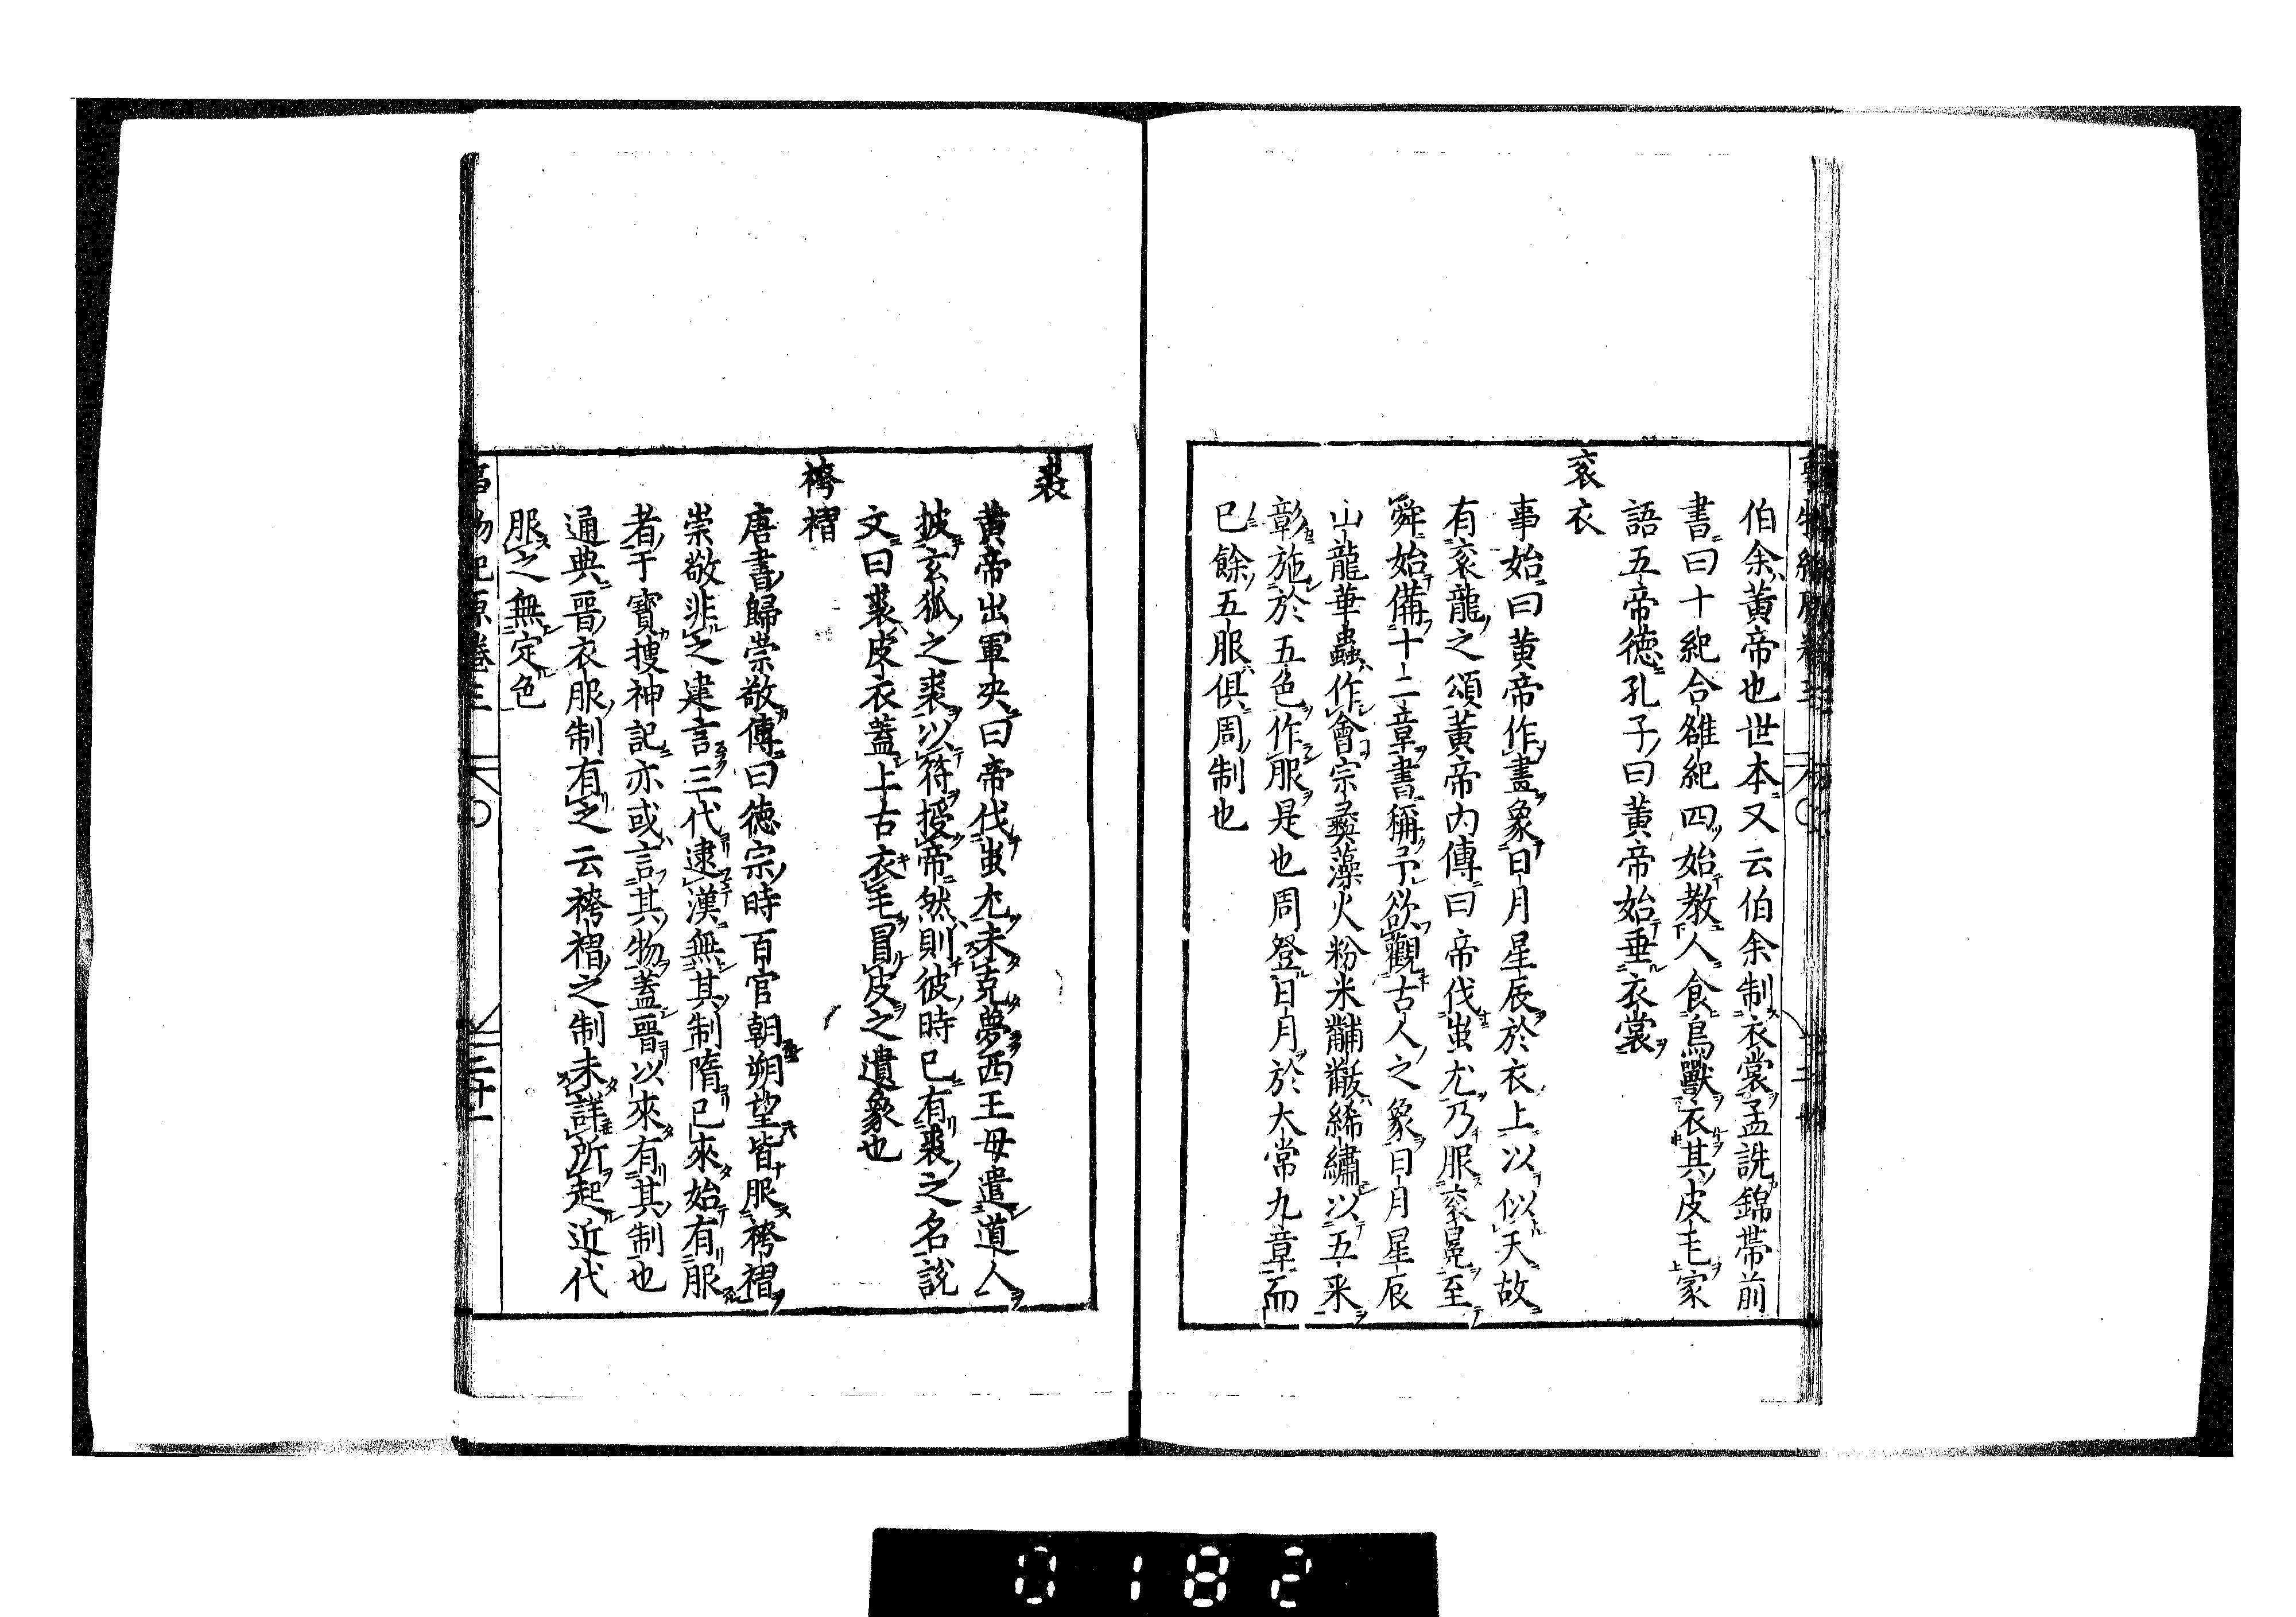 伯余黃帝也世本又云伯余制衣裳孟詵錦帶前
書曰十紀合雒紀四始教人食鳥獸衣其皮毛家
語五帝德孔子曰黃帝始垂衣裳
袞衣
事始曰黃帝作畫象日月星辰於衣上以似天故
有袞龍之頌黃帝內傳曰帝伐蚩尤乃服袞冕至
舜始備十二章書稱予欲觀古人之象日月星辰
山龍華蟲作會宗彝藻火粉米黼黻絺繡以五采
彰施於五色作服是也周登日月於大常九章而
已餘五服俱周制也
裘
黃帝出軍決曰帝伐蚩尤未克夢西王母遣道人
披玄狐之裘以符授帝然則彼時已有裘之名說
文曰裘皮衣蓋上古衣毛冒皮之遺象也
袴褶
唐書歸崇敬傳曰德宗時百官朝朔望皆服袴褶
崇敬非之建言三代逮漢無其制隋已來始有服
者于寶搜神記亦或言其物蓋晉以來有其制也
通典晉衣服制有之云袴褶之制未詳所起近代
服之無定色
事物紀原卷三
二十一
0182